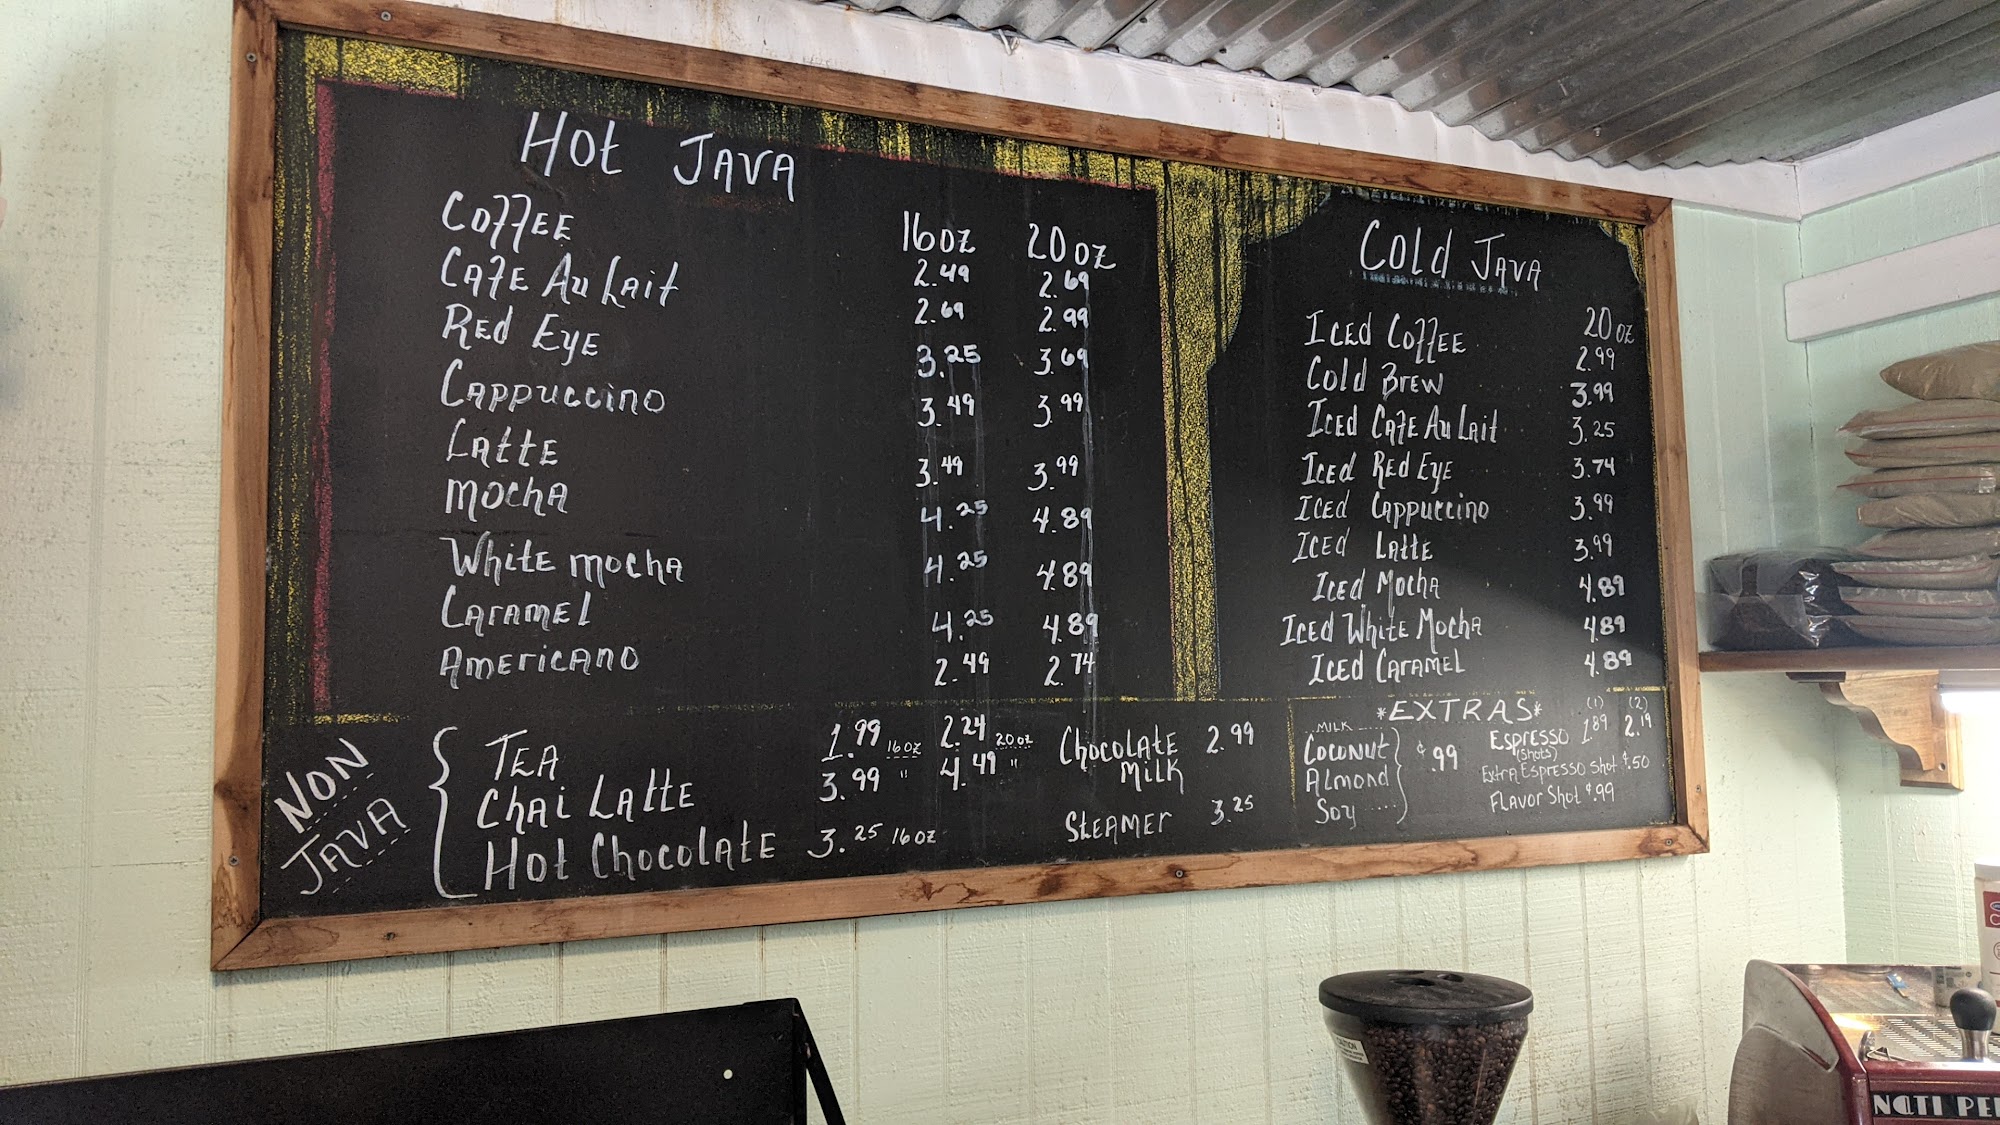 Hot JAVA
16oz 20oz
COFFEE 2.49 2.69
CAFE Au Lait 2.69 2.99
Red Eye 3.25 3.69
Cappuccino 3.49 3.99
Latte 3.49 3.99
Mocha 4.25 4.89
White mocha 4.25 4.89
Caramel 4.25 4.89
Americano 2.49 2.74
Cold JAVA
20oz
Iced Coffee 2.99
Cold Brew 3.99
Iced Cafe Au Lait 3.25
Iced Red Eye 3.74
Iced Cappuccino 3.99
Iced Latte 3.99
Iced Mocha 4.89
Iced White Mocha 4.89
Iced Caramel 4.89
NON
JAVA
TEA 1.99 16oz 2.24 20oz
Chai Latte 3.99 " 4.49 "
Hot Chocolate 3.25 16oz
Chocolate 2.99
Milk
Steamer 3.25
*EXTRAS*
MILK
Coconut
Almond $.99
Soy
(1) (2)
Espresso 1.89 2.19
(shots)
Extra Espresso Shot $.50
Flavor Shot $.99
CAUTION